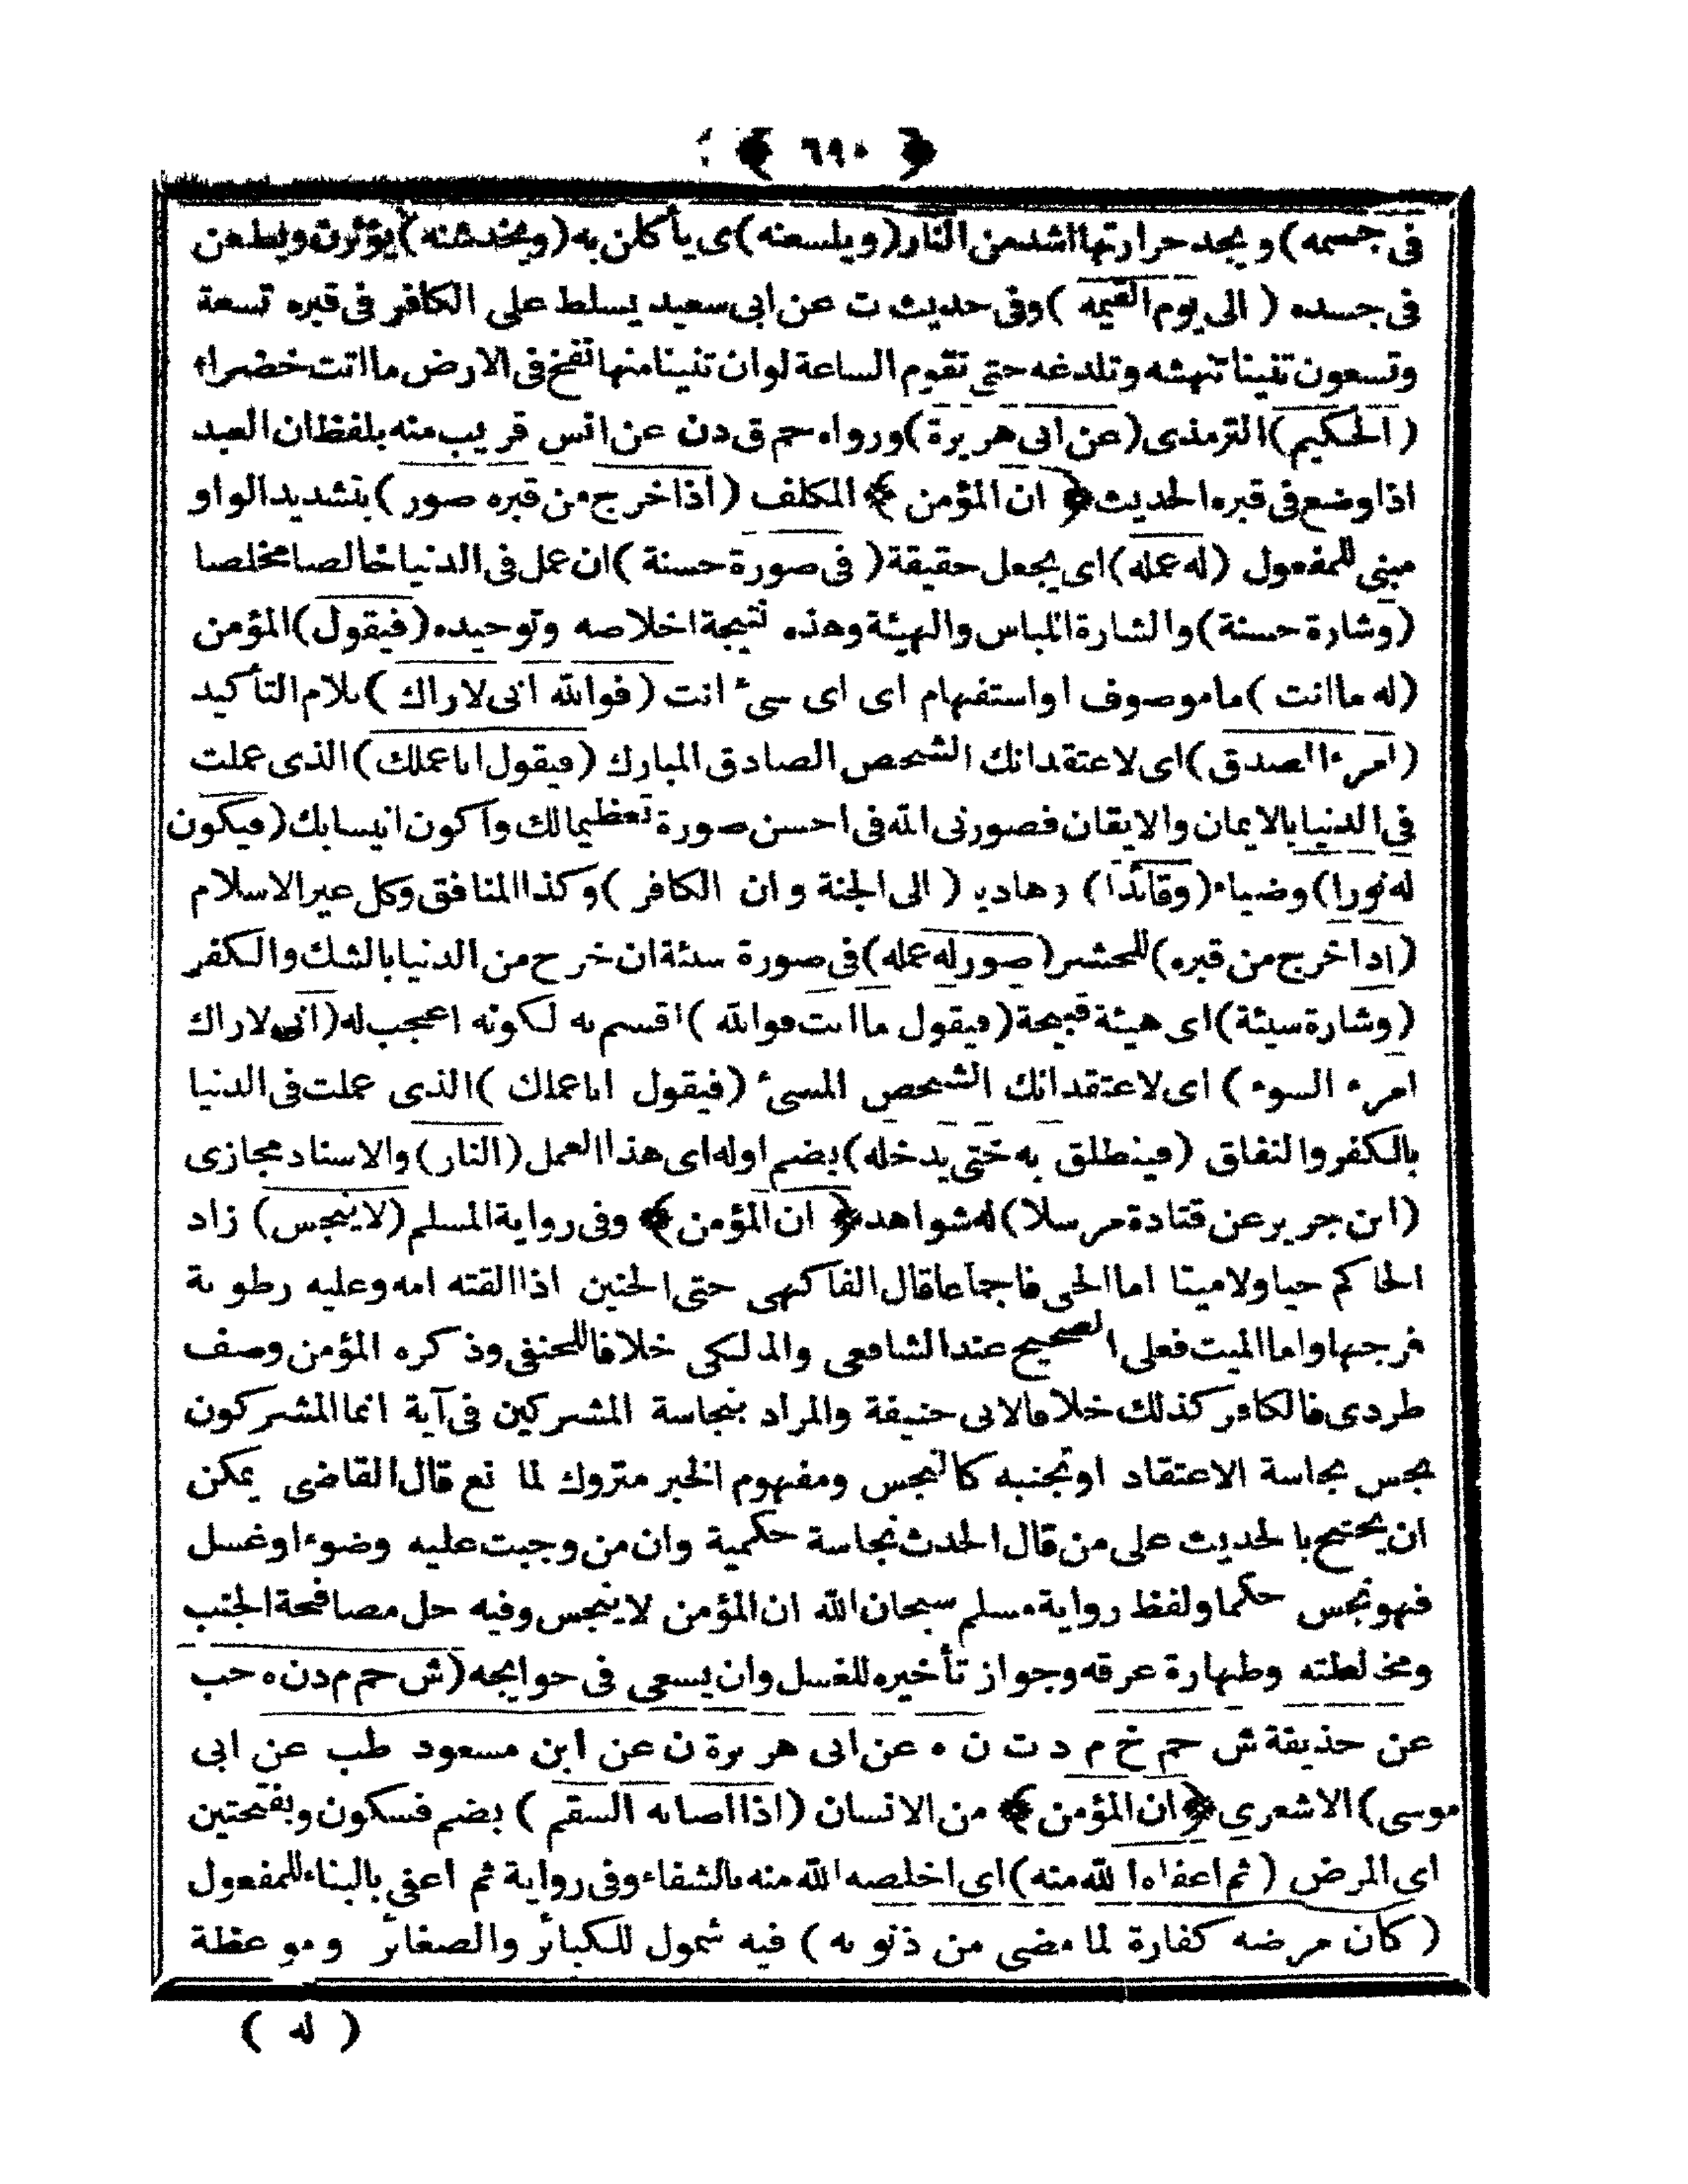 ﴿ ٦٩٠ ﴾
فى جسمه) و يجد حرارتها اشد من النار (ويلسعنه) ى يأكلن به (ويخدشنه) يؤثرن ويطعن
فى جسده ( الى يوم القيمه ) وفى حديث ت عن ابى سعيد يسلط على الكافر فى قبره تسعة
وتسعون تنينا تنهشه وتلدغه حتى تقوم الساعة لوان تنينا منها نفخ فى الارض ما اتت خضراء
( الحكيم) الترمذى (عن ابى هريرة) ورواه حم ق د ن عن انس قريب منه بلفظ ان العبد
اذا وضع فى قبره الحديث ﴿ ان المؤمن ﴾ المكلف (اذا خرج من قبره صور ) بتشديد الواو
مبنى للمفعول (له عمله) اى يجعل حقيقة ( فى صورة حسنة ) ان عمل فى الدنيا خالصا مخلصا
(وشارة حسنة) والشارة المباس والهيئة وهذه نتيجة اخلاصه وتوحيده (فيقول) المؤمن
(له ما انت ) ما موصوف او استفهام اى اى سىء انت (فوالله انى لاراك ) بلام التأكيد
(امرء الصدق) اى لاعتقد انك الشخص الصادق المبارك (فيقول انا عملك) الذى عملت
فى الدنيا بالايمان والايقان فصورنى الله فى احسن صورة تعظيما لك وآكون انيسا بك (فيكون
له نورا) وضياء (وقائدا) وهاديا ( الى الجنة وان الكافر ) وكذا المنافق وكل غير الاسلام
(اذا خرج من قبره) للحشر (صور له عمله) فى صورة سئة ان خرج من الدنيا بالشك والكفر
(وشارة سيئة) اى هيئة قبيحة (فيقول ما انت فوالله ) اقسم به لكونه اعجب له (انى لاراك
امرء السوء ) اى لاعتقد انك الشخص المسىء (فيقول انا عملك ) الذى عملت فى الدنيا
بالكفر والنفاق (فينطلق به حتى يدخله) بضم اوله اى هذا العمل (النار) والاسناد مجازى
(ابن جرير عن قتادة مرسلا) له شواهد ﴿ ان المؤمن ﴾ وفى رواية المسلم (لا ينجس) زاد
الحاكم حيا ولا ميتا اما الحى فاجماعا قال الفاكهى حتى الجنين اذا القته امه وعليه رطوبة
فرجها واما الميت فعلى الصحيح عند الشافعى والمالكى خلافا للحنفى وذكره المؤمن وصف
طردى فالكافر كذلك خلافا لابى حنيفة والمراد بنجاسة المشركين فى آية انما المشركون
نجس نجاسة الاعتقاد او تجنبه كالنجس ومفهوم الخبر متروك لما نع قال القاضى يمكن
ان يحتج بالحديث على من قال الحدث نجاسة حكمية وان من وجبت عليه وضوء او غسل
فهو نجس حكما ولفظ رواية مسلم سبحان الله ان المؤمن لا ينجس وفيه حل مصافحة الجنب
ومخالطته وطهارة عرقه وجواز تأخيره للغسل وان يسعى فى حوايجه (ش حم م د ن ه حب
عن حذيفة ش حم خ م د ت ن ه عن ابى هريرة ن عن ابن مسعود طب عن ابى
موسى) الاشعرى ﴿ ان المؤمن ﴾ من الانسان (اذا اصابه السقم ) بضم فسكون وبفتحتين
اى المرض ( ثم اعفاه الله منه) اى اخلصه الله منه بالشفاء وفى رواية ثم اعفى بالبناء للمفعول
( كان مرضه كفارة لما مضى من ذنوبه ) فيه شمول للكبائر والصغائر وموعظة
( له )